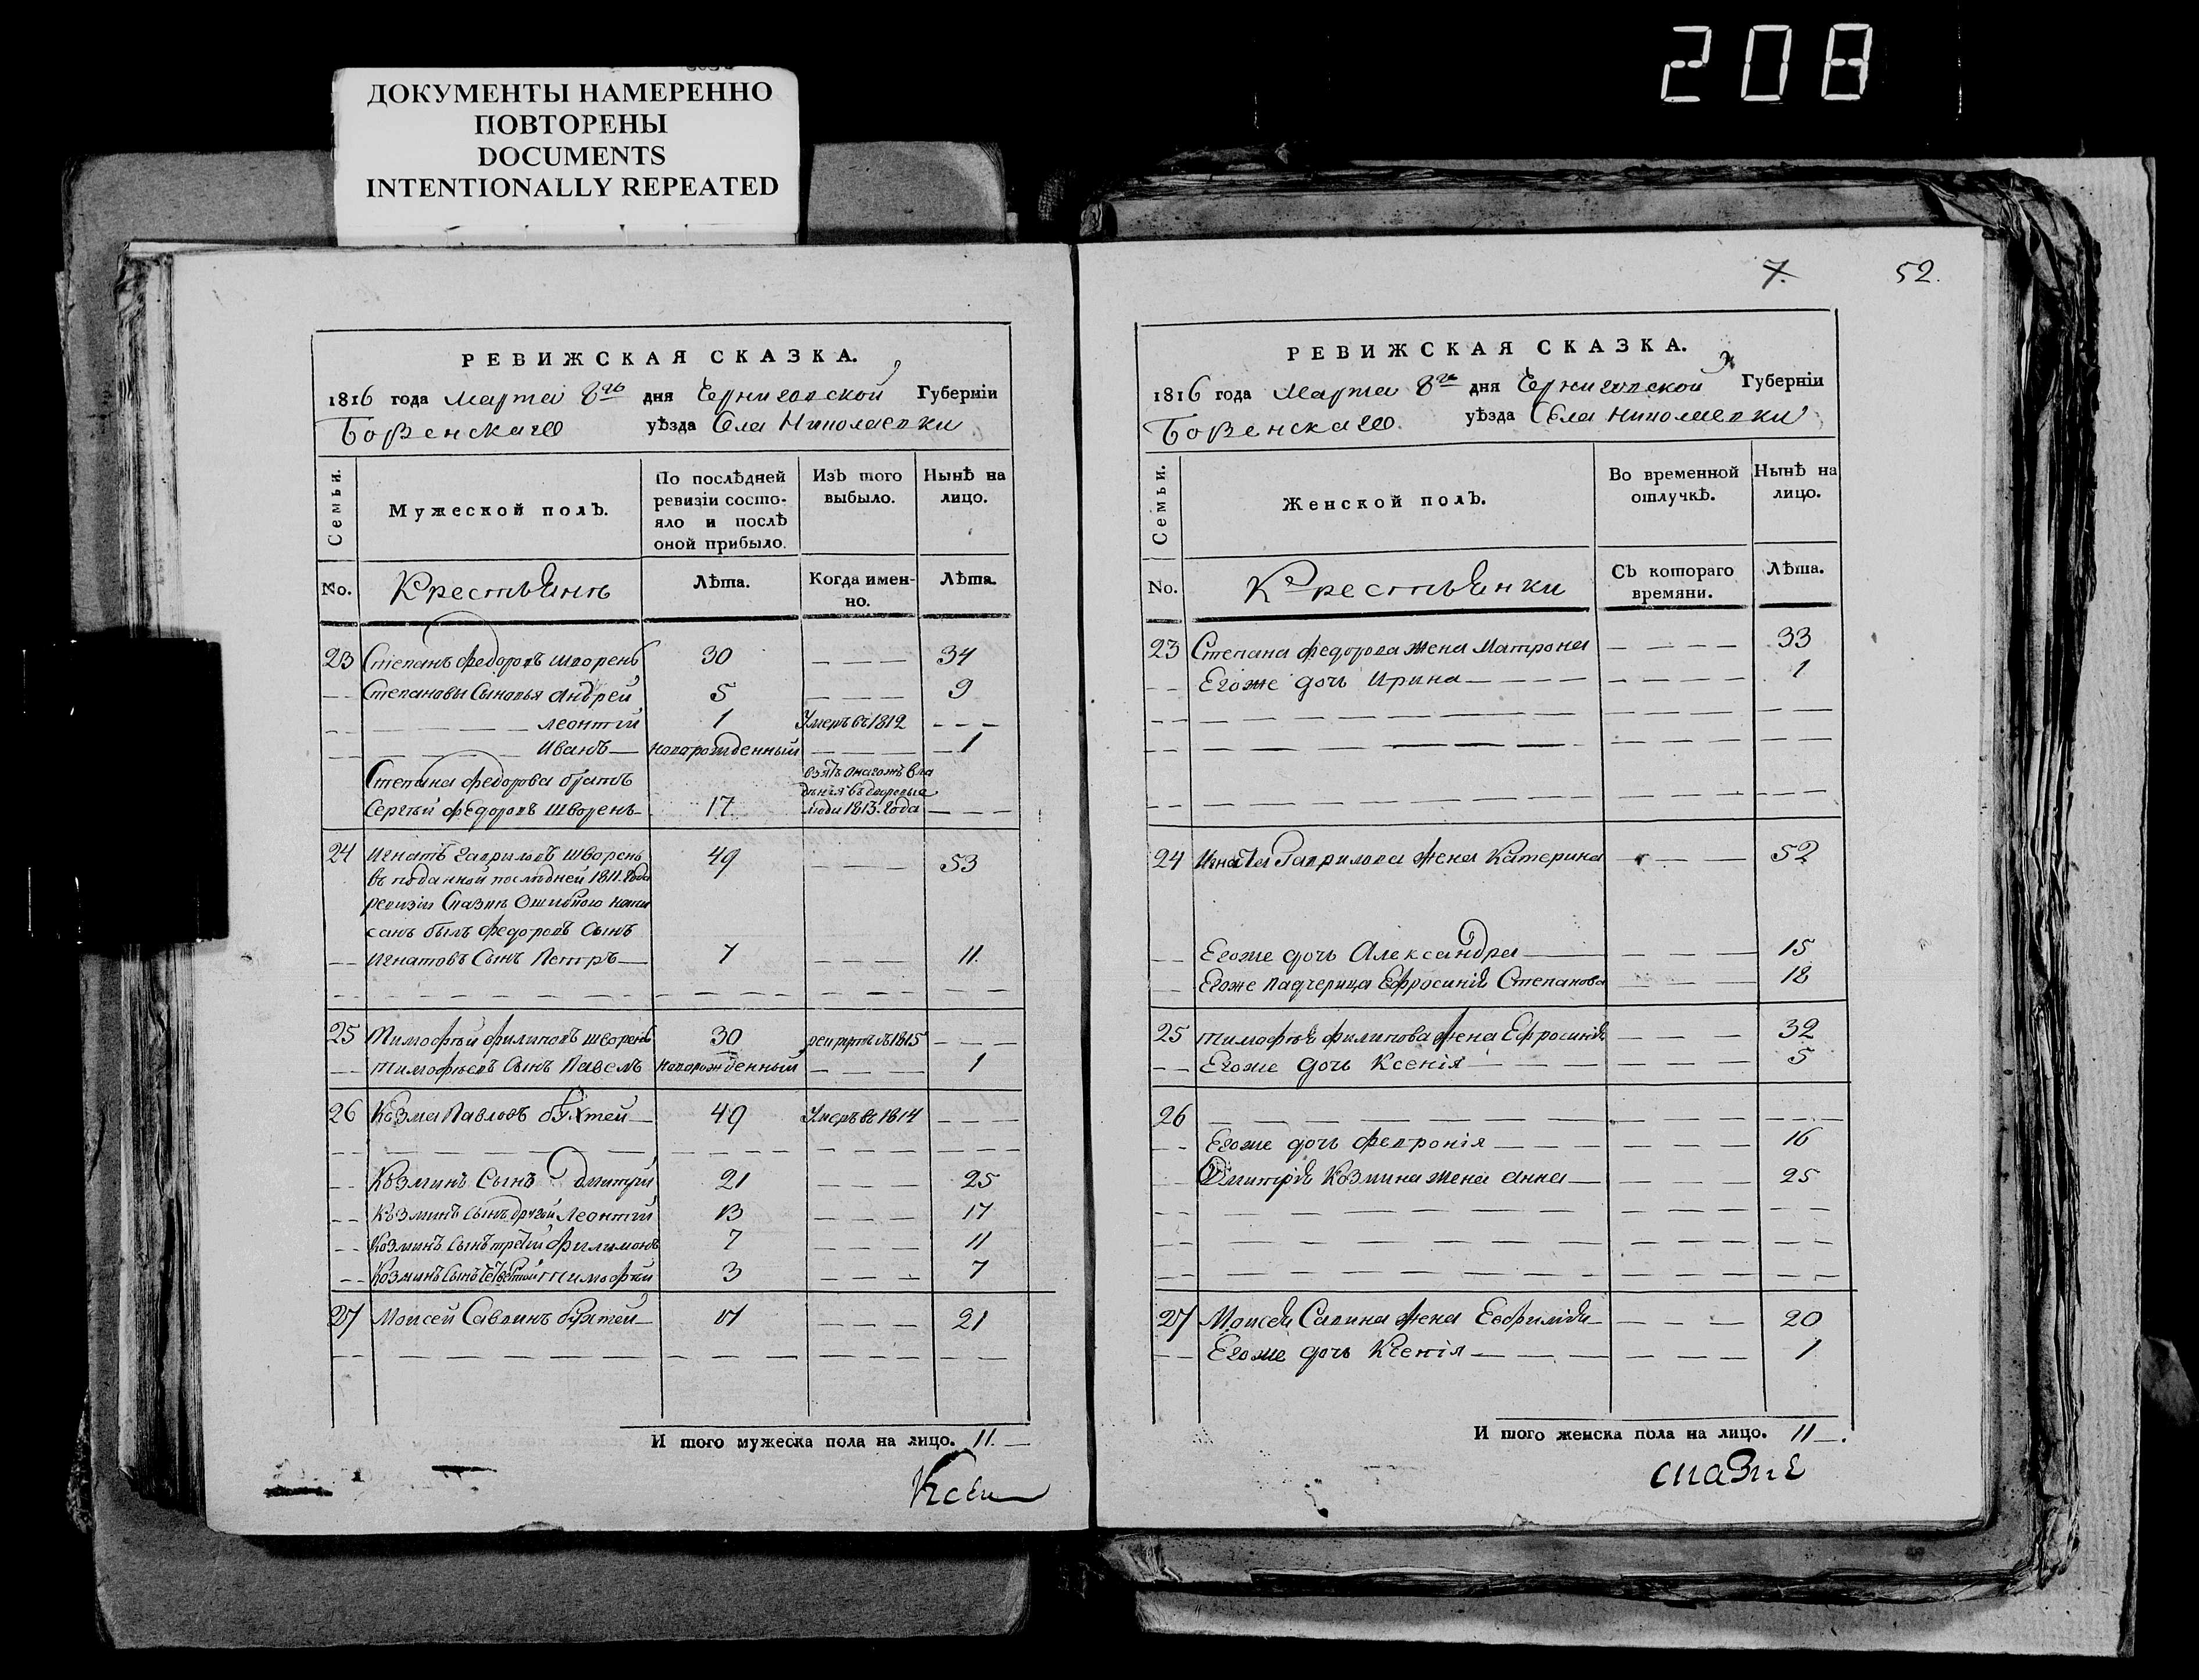 208
ДОКУМЕНТЫ НАМЕРЕННО
ПОВТОРЕНЫ
DOCUMENTS
INTENTIONALLY REPEATED
РЕВИЖСКАЯ СКАЗКА.
1816 года Марта 8го дня Черниговской Губерніи
Борзенскаго уѣзда Села Николаевки
Семьи. Мужеской полъ. По послѣдней ревизіи состояло и послѣ оной прибыло. Изъ того выбыло. Нынѣ на лицо.
No. Крестьянъ Лѣта. Когда именно. Лѣта.
23 Степанъ Федоровъ шворень 30 — — — 34
— — Степановы Сыновья Андрей 5 — — — 9
— — — — — Леонтій 1 Умеръ въ 1812 — — —
— — — — — Иванъ — новорожденный — — — 1
Степана Федорова братъ
Сергѣй Федоровъ Шворень — 17. взятъ
люди 1813. года — — —
24 Игнатъ Гавриловъ шворень 49 — — — 53
въ поданной послѣдней 1811. года
ревизіи Сказкѣ Ошибкою напи
санъ былъ Федоровъ Сынъ
— — Игнатовъ Сынъ Петръ — 7 — — — 11.
25 Тимофѣй Филиповъ шворень 30 въ 1815 — — —
— — Тимофѣевъ Сынъ Павелъ новорожденный — — — 1
26 Козма Павловъ — 49 Умеръ въ 1814 — — —
— — Козминъ Сынъ Дмитрій 21 — — — 25
— — Козминъ Сынъ другой Леонтій 13 — — — 17
— — Козминъ Сынъ третій Филимонъ 7 — — — 11
— — Козминъ Сынъ Тимофѣй 3 — — — 7
27 Моисей Саввинъ — 17 — — — 21
И того мужеска пола на лицо. 11. —
7. 52.
РЕВИЖСКАЯ СКАЗКА.
1816 года Марта 8го дня Черниговской Губерніи
Борзенскаго. уѣзда Села Николаевки
Семьи. Женской полъ. Во временной отлучкѣ. Нынѣ на лицо.
No. Крестьянки Съ котораго времяни. Лѣта.
23 Степана Федорова жена Матрона — — — — 33
— — Егоже дочь Ирина — — — — 1
24 Игната Гаврилова жена Катерина — — — 52
— — Егоже дочь Александра — — — — 15
— — Егоже падчерица Ефросинія Степанова — — — 18
25 Тимофѣя Филипова жена Ефросинія — — — 32
— — Егоже дочь Ксенія — — — — 5
26 — — — —
— — Егоже дочь Февронія — — — — 16
Дмитрія Козмина жена Анна — — — — 25
27 Моисея Савина жена Евфимія — — — — 20
— — Егоже дочь Ксенія — — — — 1
И того женска пола на лицо. 11 —.
сказке